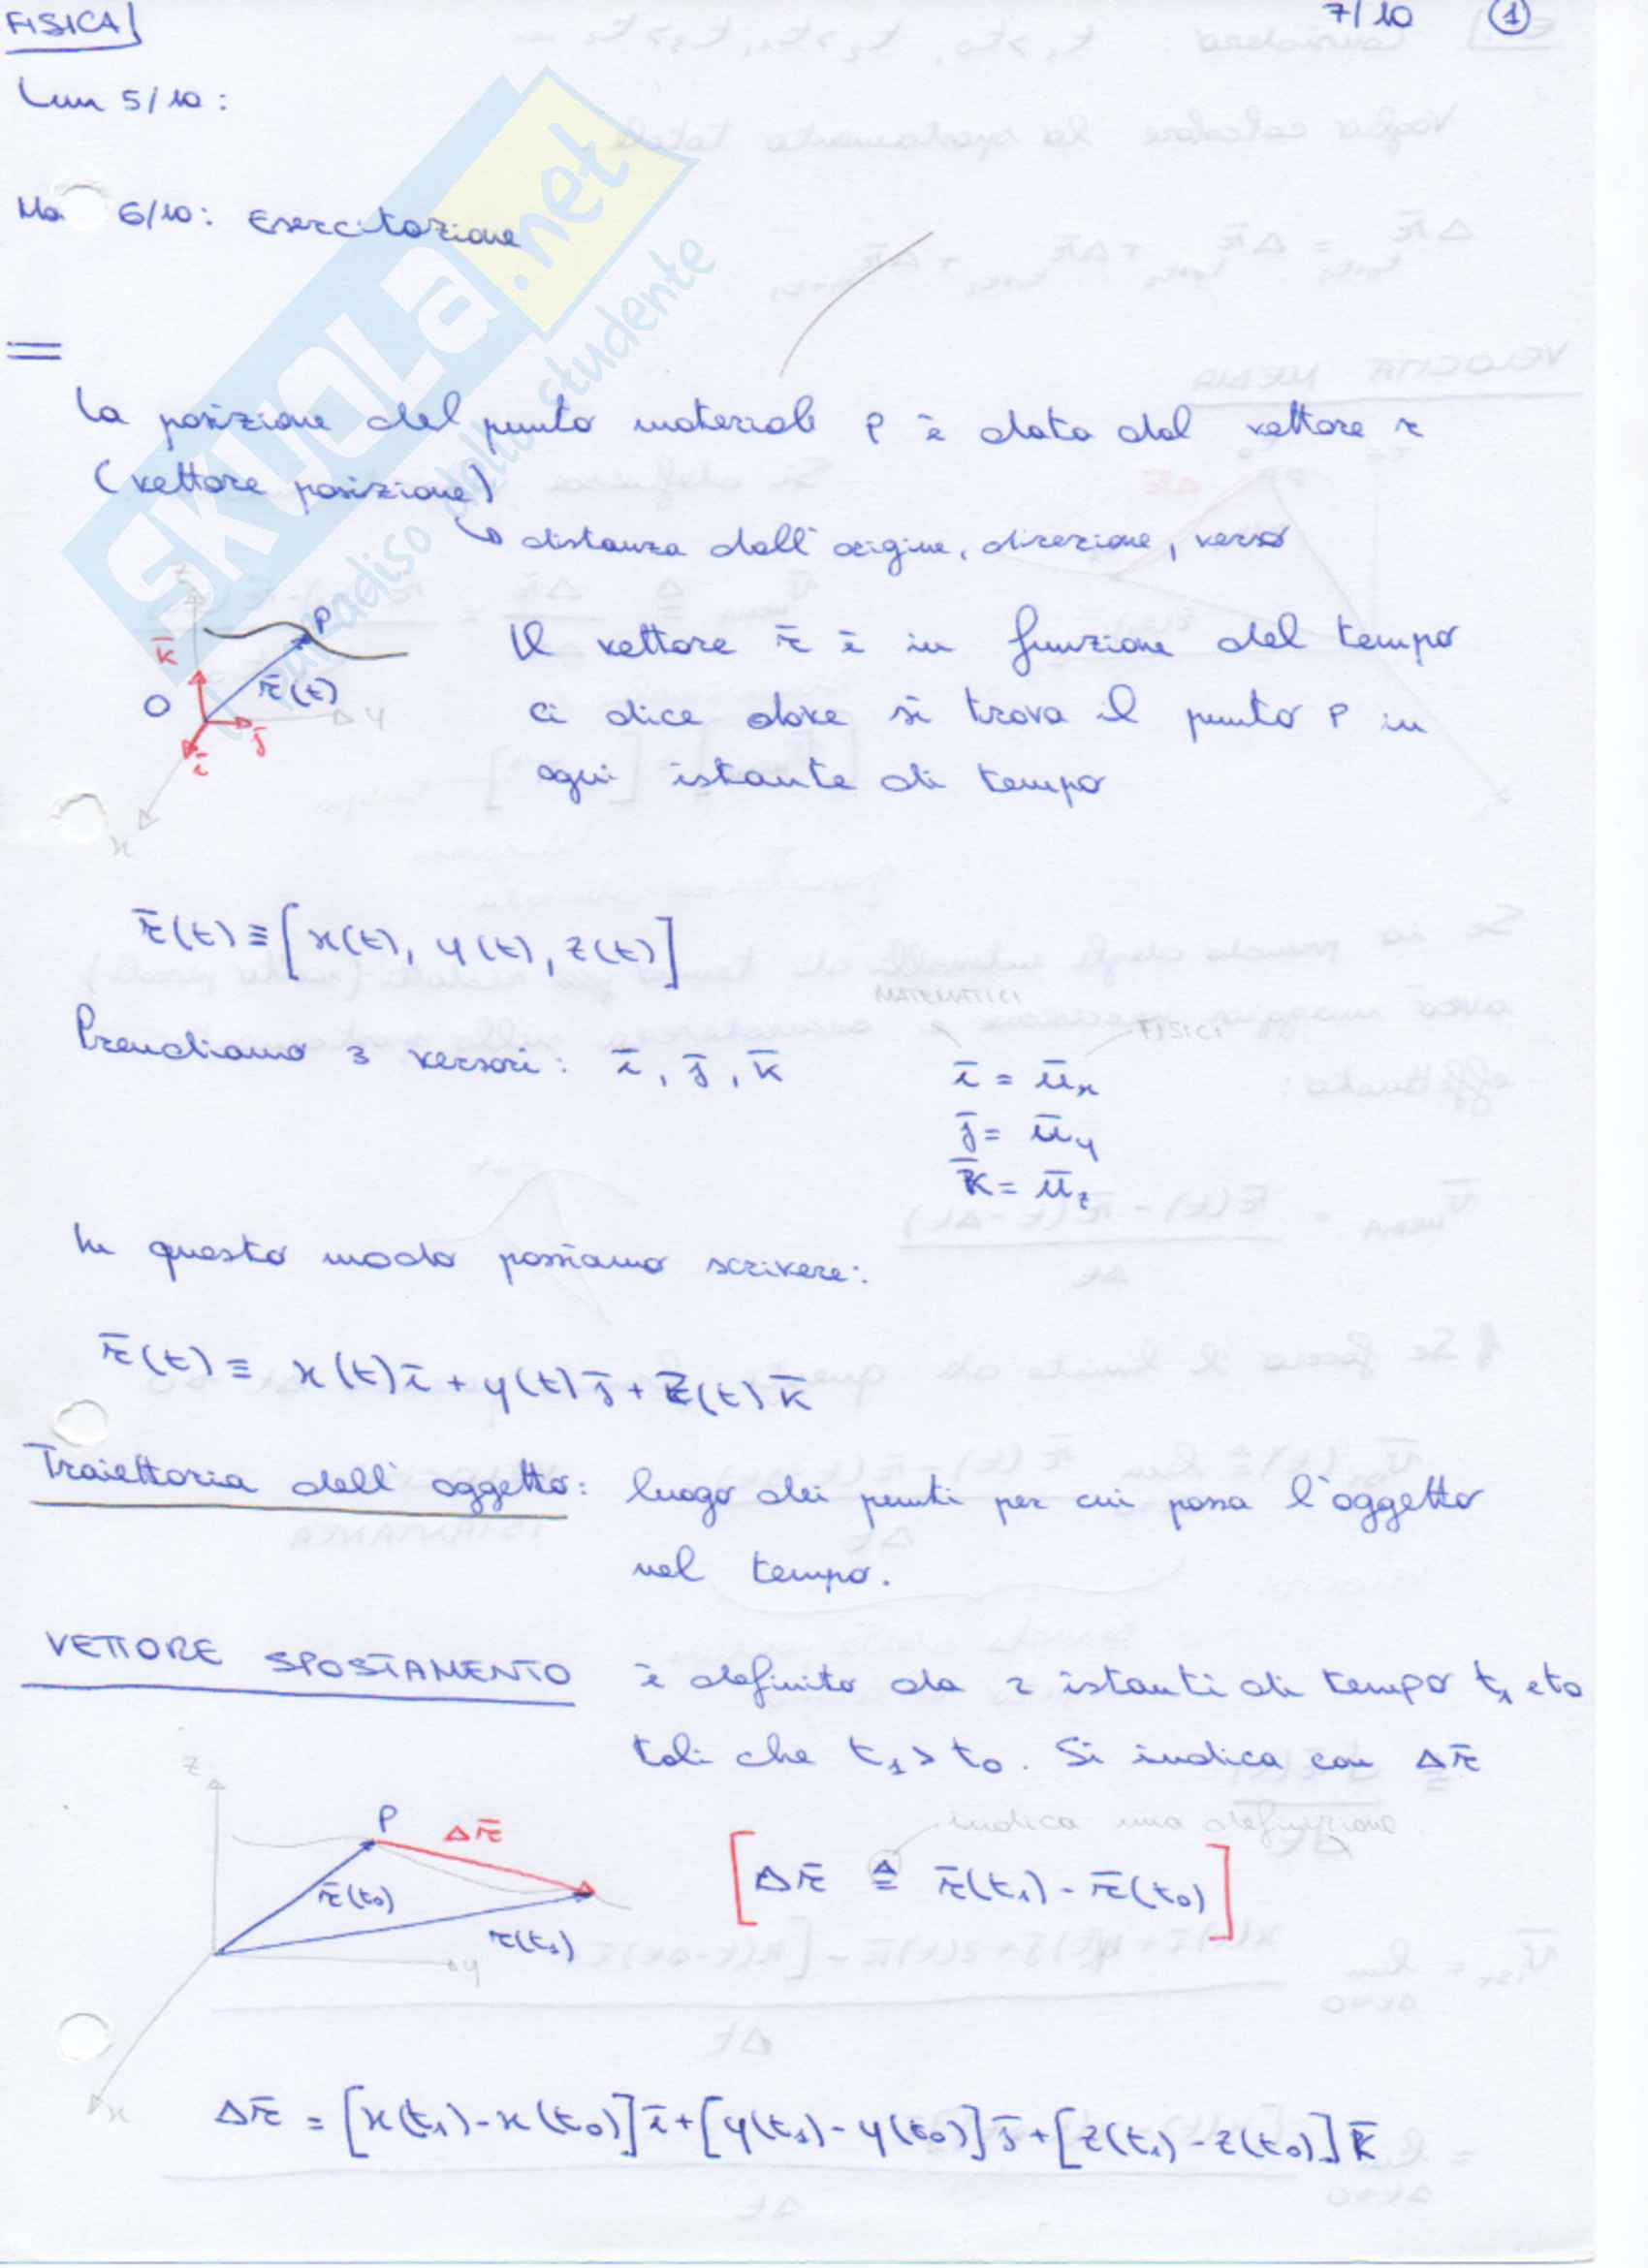 FISICA
7/10 ①
Lun 5/10:
Ma 6/10: Esercitazione
SKUOLA.net
paradiso dello studente
=
La posizione del punto materiale P è data dal vettore r
(vettore posizione)
↳ distanza dall'origine, direzione, verso
z
P
k̄
O
r̄(t)
y
j̄
ī
x
Il vettore r̄ è in funzione del tempo
ci dice dove si trova il punto P in
ogni istante di tempo
r̄(t) ≡ [x(t), y(t), z(t)]
MATEMATICI
FISICI
Prendiamo 3 versori: ī, j̄, k̄
ī = ūx
j̄ = ūy
k̄ = ūz
In questo modo possiamo scrivere:
r̄(t) ≡ x(t)ī + y(t)j̄ + z(t)k̄
Traiettoria dell'oggetto: luogo dei punti per cui passa l'oggetto
nel tempo.
VETTORE SPOSTAMENTO è definito da 2 istanti di tempo t₁ e t₀
tali che t₁ > t₀. Si indica con Δr̄
indica una definizione
z
P
Δr̄
r̄(t₀)
r(t₁)
y
x
[Δr̄ ≜ r̄(t₁) - r̄(t₀)]
Δr̄ = [x(t₁) - x(t₀)]ī + [y(t₁) - y(t₀)]j̄ + [z(t₁) - z(t₀)]k̄